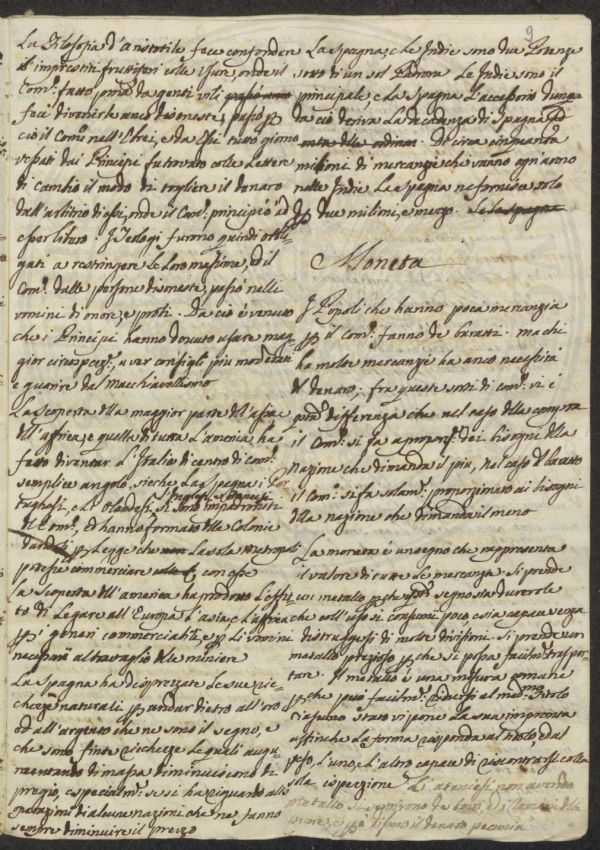 9
La Filosofia d'Aristotile fece confondere
l'imprestiti fruttiferi colle Usure, onde il
Com.º fatto, prima da genti vili
fece divenirle anco disoneste, passò
ciò il Com.º nell'Ebrei, e da essi tutto giorno
vessati dai Principi fu trovato colle Lettere
di cambio il modo di togliere il denaro
dall'arbitrio di essi, onde il Com.º principiò ad
esser sicuro. I Teologi furono quindi obli-
gati a restringere le loro massime, ed il
Com.º dalle persone disoneste, passò nelli
uomini di onore, e probi. Da ciò è venuto
che i Principi hanno dovuto usare mag-
gior circospez.e, aver consigli più moderati
e guarire dal Macchiavellismo
La scoperta della maggior parte dell'Asia
dell'Affrica, e quella di tutta l'America ha
fatto diventar l'Italia di centro di Com.º
semplice angolo, sicche La Spagna i Por-
tughesi, e Li Olandesi, si sono impadroniti
del Com.º, ed hanno formato delle Colonie
Legge che La sola Metropoli
potesse commerciare con esse
La scoperta dell'America ha prodotto l'effet-
to di Legare all'Europa l'Asia, e l'Affrica
p. i generi commerciabili, e p. Li uomini
necessari al travaglio delle miniere
La Spagna ha disprezzate Le sue ric-
chezze naturali p. andar dietro all'oro
ed all'argento che ne sono il segno, e
che sono finte ricchezze Le quali aug-
mentando di massa diminuiscono di
pregio, e specialm.e se si ha riguardo alle
operazioni di alcune nazioni che ne fanno
sempre diminuire il prezzo
La Spagna, e le Indie sono due Potenze
sotto di un sol Padrone. Le Indie sono il
principale, e la Spagna l'accessorio dunque
da ciò deriva La decadenza di Spagna
Di circa cinquanta
milioni di mercanzie che vanno ogn'anno
nelle Indie La Spagna ne fornisce solo
p. due milioni, e mezzo. Se la Spagna
Moneta
I Popoli che hanno poca mercanzia
p. il Com.º fanno de Baratti. ma chi
ha molte mercanzie ha anco necessità
di denaro; fra queste sorti di Com.º vi è
differenza che nel caso della compra
il Com.º si fa a proporz.e dei bisogni della
Nazione che dimanda il più, nel caso di baratto
il Com.º si fa solam.e proporzionato ai bisogni
della nazione che dimanda il meno
La moneta è un segno che rappresenta
il valore di tutte Le mercanzie. Si prende
un metallo p.che questo segno sia durevole
che coll'uso si consumi poco, e sia capace senza
distruggersi di molte divisioni. Si prende un
metallo prezioso p.che si possa facilm.e traspor-
tare. Il metallo è una misura comune
p.che può facilm.e ridursi al med.mo titolo
Ciascuno Stato vi pone La sua impronta
affinche La forma risponda al titolo, e al
peso, e l'uno, e l'altro capace di riscontrarsi colla
sola ispezione. L'Ateniesi non avendo
metallo si servirono de bovi, ed i Romani delle
pecore,